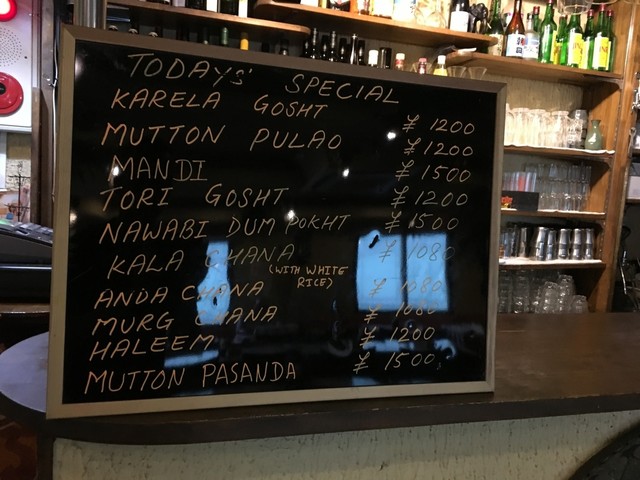 TODAYS' SPECIAL
KARELA GOSHT ¥ 1200
MUTTON PULAO ¥ 1200
MANDI ¥ 1500
TORI GOSHT ¥ 1200
NAWABI DUM POKHT ¥ 1500
KALA CHANA ¥ 1080
(WITH WHITE
RICE)
ANDA CHANA ¥ 1080
MURG CHANA ¥ 1080
HALEEM ¥ 1200
MUTTON PASANDA ¥ 1500